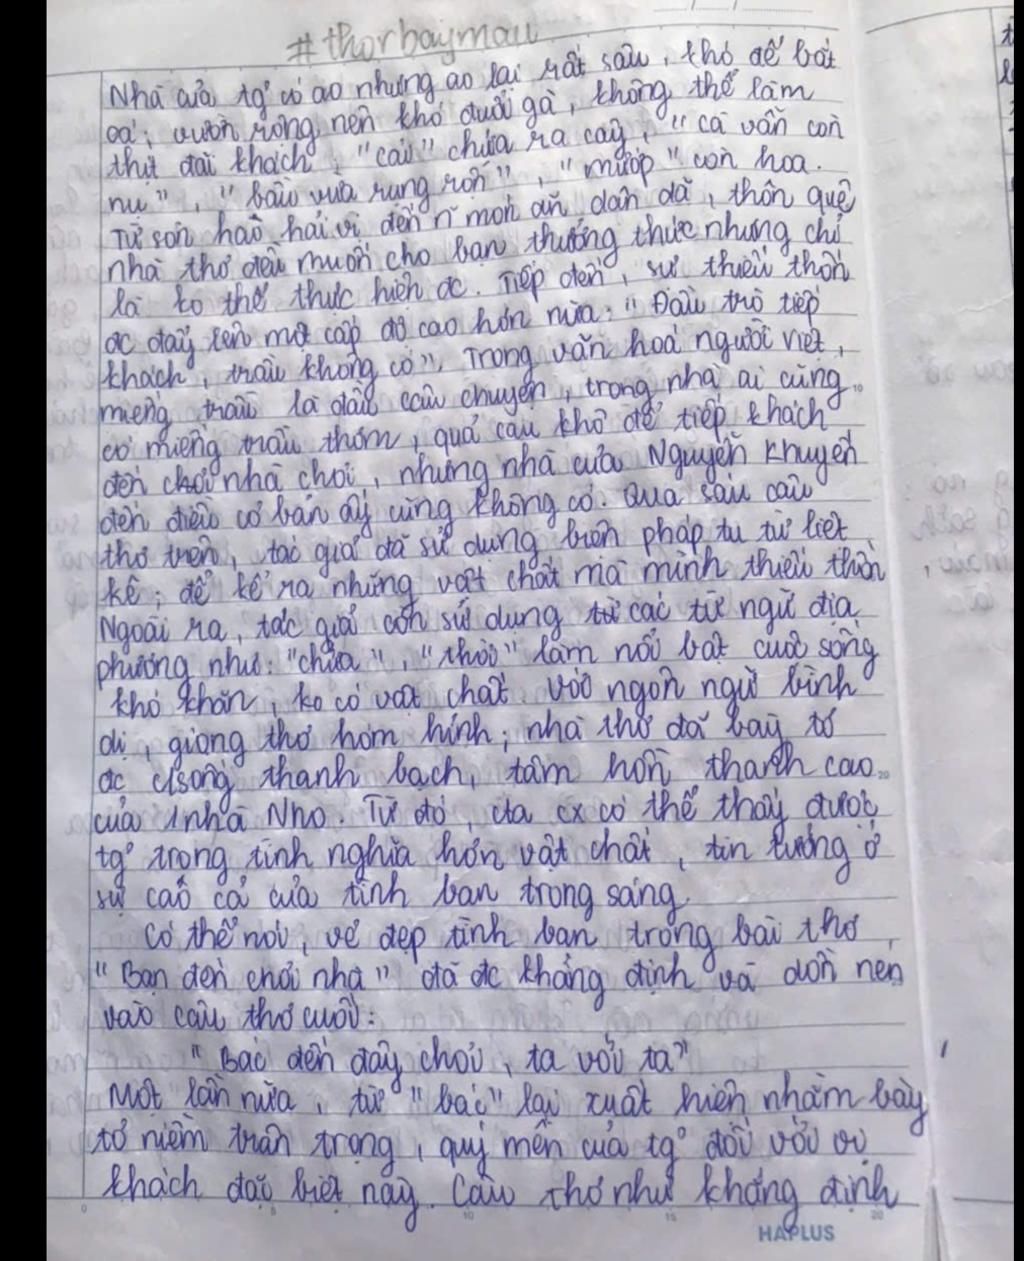 #thorbaymau
Nhà của tgº có ao nhưng ao lại rất sâu, khó để bắt
cá; vườn rộng nên khó đuổi gà, không thể làm
thịt đãi khách, "cải" chửa ra cây, "cà vẫn còn
nụ", "bầu vừa rụng rốn", "mướp" còn hoa.
Từ sơn hào hải vị đến n~ món ăn dân dã, thôn quê
nhà thơ đều muốn cho bạn thưởng thức nhưng chỉ
là ko thể thực hiện đc. Tiếp đến, sự thiếu thốn
đc đẩy lên một cấp độ cao hơn nữa: "Đầu trò tiếp
khách, trầu không có". Trong văn hoá người việt,
miếng trầu là đầu câu chuyện, trong nhà ai cũng
có miếng trầu thơm, quả cau khô để tiếp khách
đến nhà chơi, nhưng nhà của Nguyễn Khuyến
đến điều cơ bản ấy cũng không có. Qua sáu câu
thơ trên, tác giả đã sử dụng biện pháp tu từ liệt
kê; để kể ra những vật chất mà mình thiếu thốn
Ngoài ra, tác giả còn sử dụng các từ ngữ địa
phương như: "chửa", "thời" làm nổi bật cuộc sống
khó khăn, ko có vật chất. với ngôn ngữ bình
dị, giọng thơ hóm hỉnh; nhà thơ đã bày tỏ
đc c/sống thanh bạch, tâm hồn thanh cao
của 1 nhà Nho. Từ đó, cta cx có thể thấy được
tgº trọng tình nghĩa hơn vật chất, tin tưởng ở
sự cao cả của tình bạn trong sáng
Có thể nói, vẻ đẹp tình bạn trong bài thơ
"Bạn đến chơi nhà" đã đc khẳng định và dồn nén
vào câu thơ cuối:
"Bác đến đây chơi, ta với ta"
Một lần nữa, từ "bác" lại xuất hiện nhằm bày
tỏ niềm trân trọng, quý mến của tgº đối với vị
khách đặc biệt này. Câu thơ như khẳng định
HAPLUS